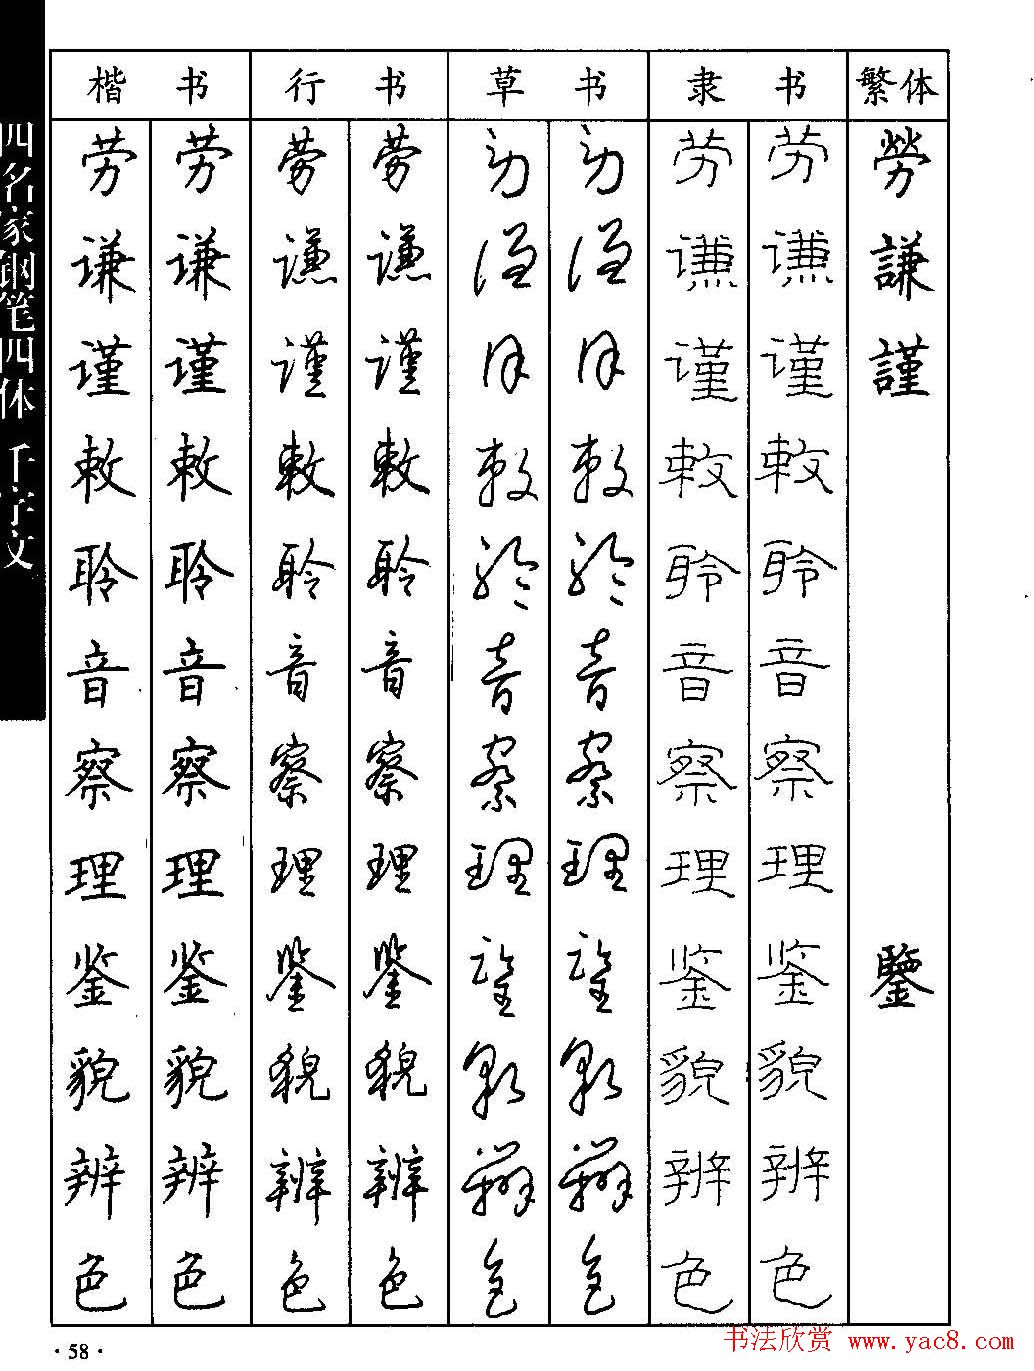 四名家钢笔四体 千字文
楷书 行书 草书 隶书 繁体
劳 劳 劳 劳 劳 劳 劳 劳 勞
谦 谦 谦 谦 谦 谦 谦 谦 謙
谨 谨 谨 谨 谨 谨 谨 谨 謹
敕 敕 敕 敕 敕 敕 敕 敕
聆 聆 聆 聆 聆 聆 聆 聆
音 音 音 音 音 音 音 音
察 察 察 察 察 察 察 察
理 理 理 理 理 理 理 理
鉴 鉴 鉴 鉴 鉴 鉴 鉴 鉴 鑒
貌 貌 貌 貌 貌 貌 貌 貌
辨 辨 辨 辨 辨 辨 辨 辨
色 色 色 色 色 色 色 色
·58·
书法欣赏 www.yac8.com